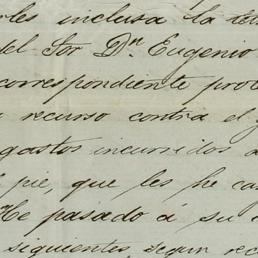 inclusa la
del Sor Dn. Eugenio
correspondiente
recurso contra el
gastos incurridos a
pie, que les he
He pasado á su
siguientes segun